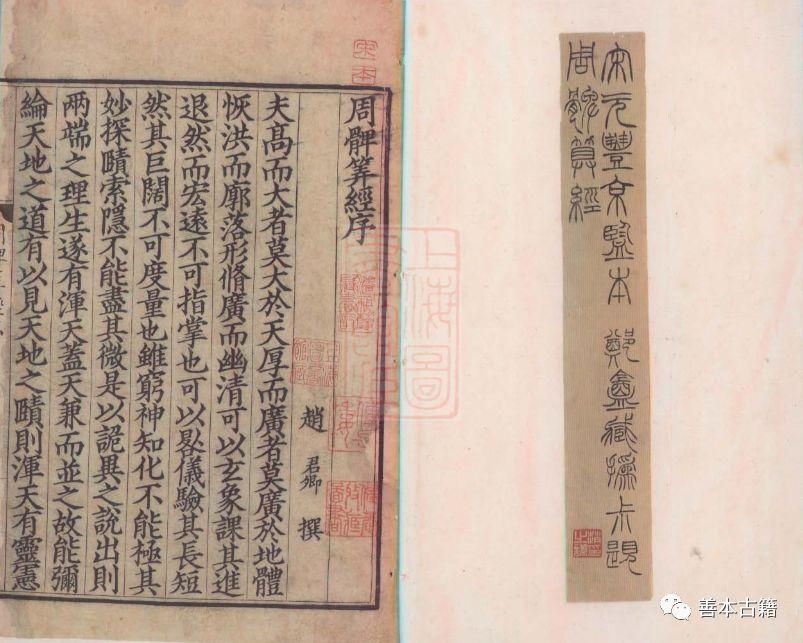 宋元豐京監本 鄭盦藏撝尗題
周髀算經
宋本
周髀筭經序
趙君卿撰
夫髙而大者莫大於天厚而廣者莫廣於地體
恢洪而廓落形脩廣而幽清可以玄象課其進
退然而宏遠不可指掌也可以晷儀驗其長短
然其巨闊不可度量也雖窮神知化不能極其
妙探賾索隱不能盡其微是以詭異之說出則
兩端之理生遂有渾天蓋天兼而並之故能彌
綸天地之道有以見天地之賾則渾天有靈憲
上海圖
善本古籍